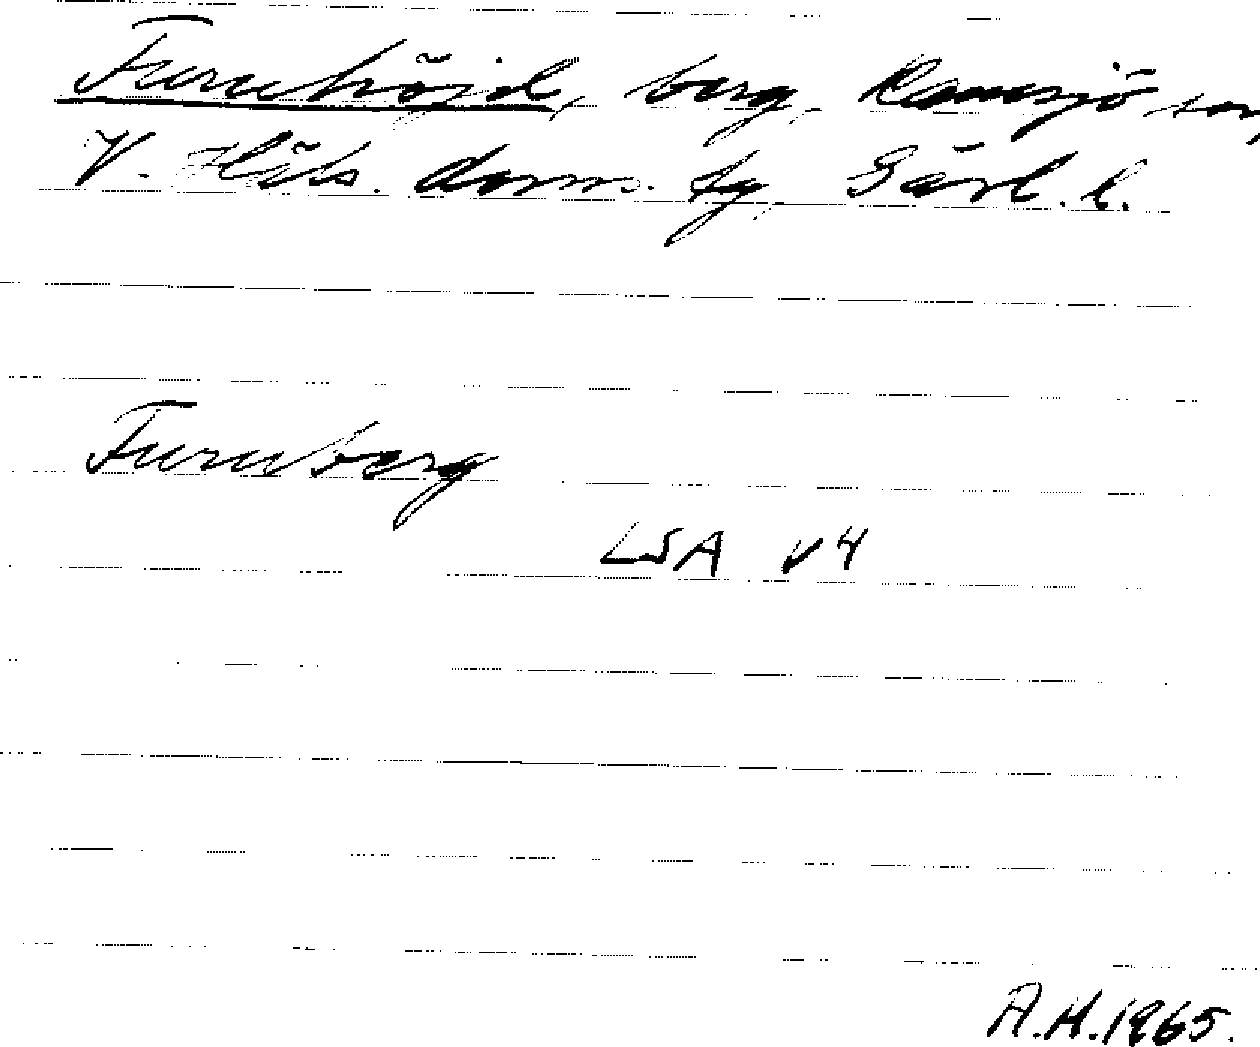 Furuhöjd, berg, Ramsjö sn,
V. Häls. doms. tg, Gävl. l.
Furuberg
LSA V4
A.H. 1965.